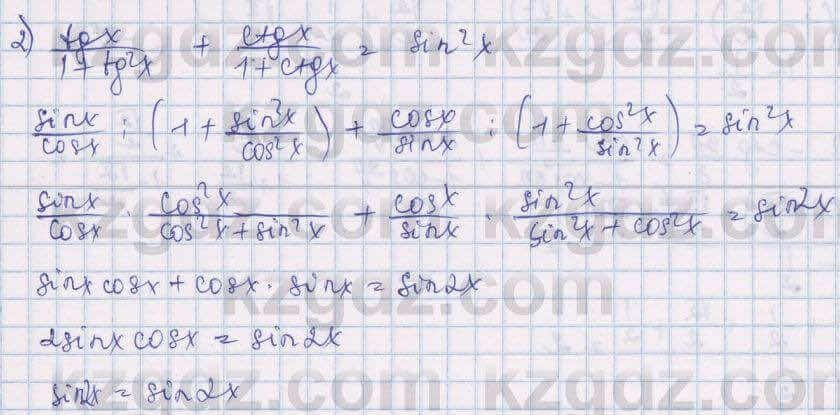 2) tgx/(1+tg²x) + ctgx/(1+ctgx) = sin²x
sinx/cosx : (1 + sin²x/cos²x) + cosx/sinx : (1 + cos²x/sin²x) = sin²x
sinx/cosx · cos²x/(cos²x+sin²x) + cosx/sinx · sin²x/(sin²x+cos²x) = sin2x
sinx cosx + cosx · sinx = sin2x
2sinx cosx = sin2x
sin2x = sin2x
kzgdz.com